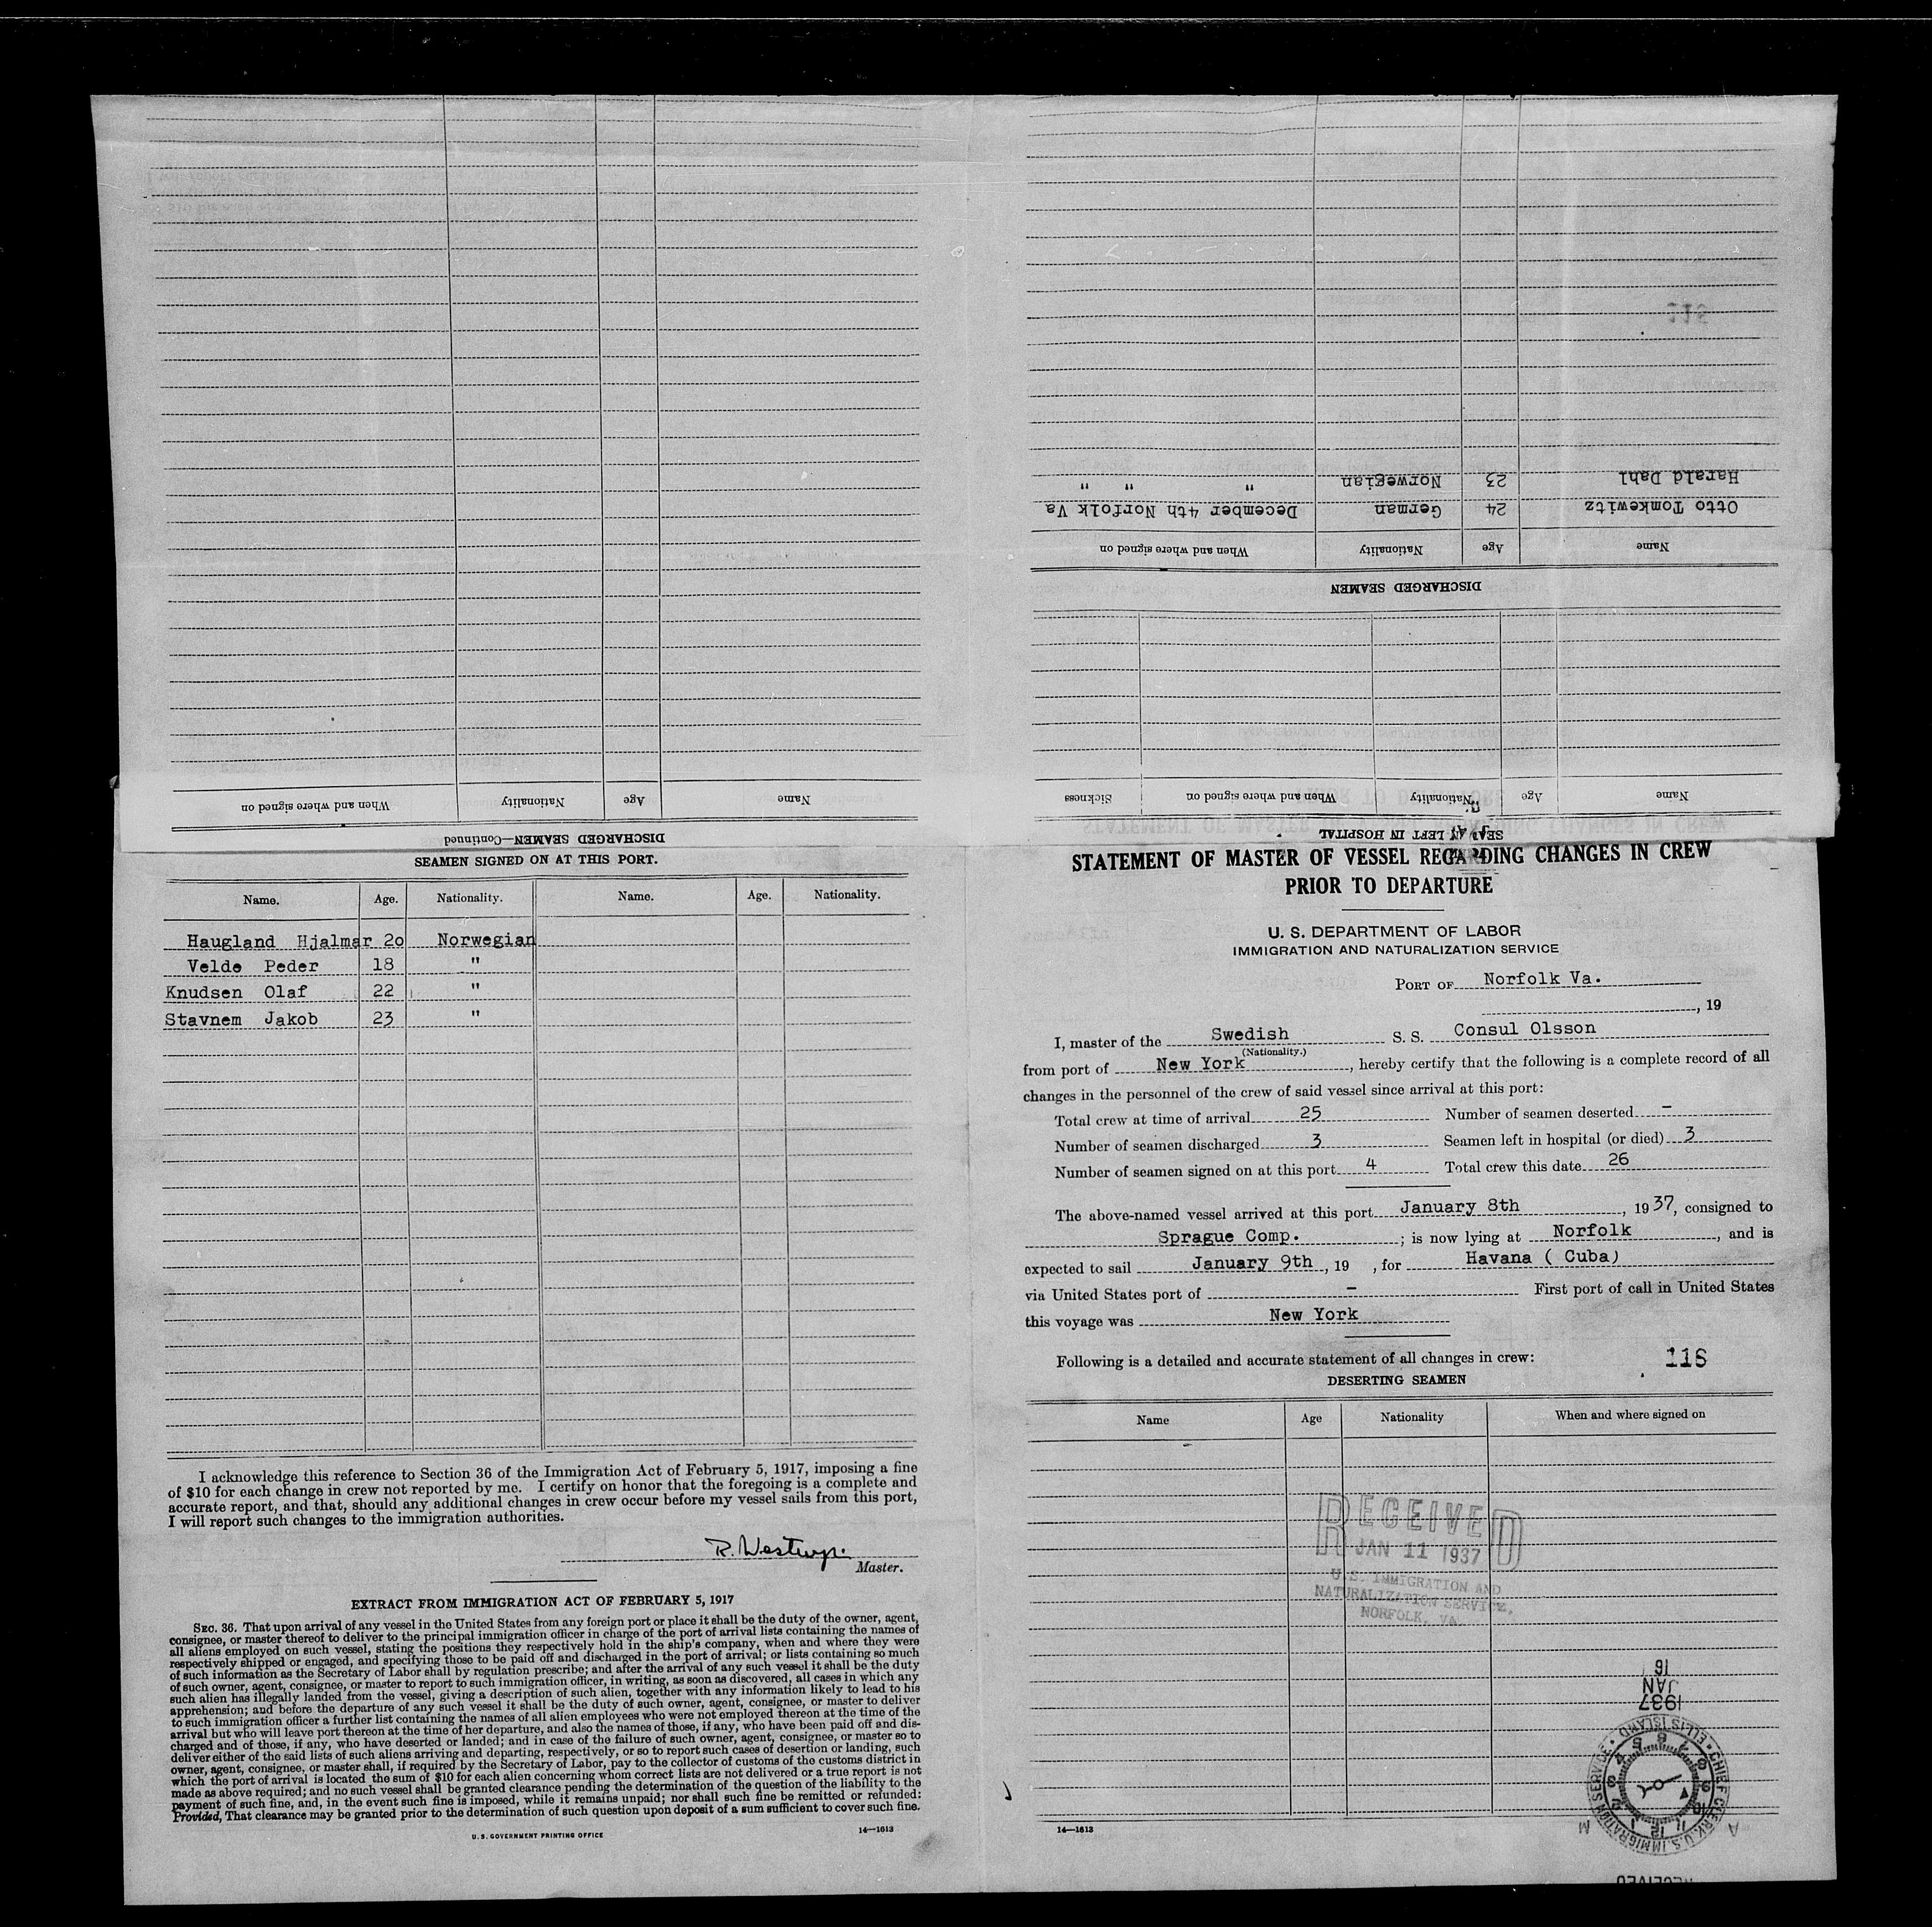 Harald Dahl 23 Norwegian " " "
Otto Tomkewitz 24 German December 4th Norfolk Va
Name Age Nationality When and where signed on
DISCHARGED SEAMEN
Name Age Nationality When and where signed on Sickness
SEAMEN LEFT IN HOSPITAL
Name Age Nationality When and where signed on
DISCHARGED SEAMEN—Continued
SEAMEN SIGNED ON AT THIS PORT.
Name. Age. Nationality. Name. Age. Nationality.
Haugland Hjalmar 2o Norwegian
Velde Peder 18 "
Knudsen Olaf 22 "
Stavnem Jakob 23 "
I acknowledge this reference to Section 36 of the Immigration Act of February 5, 1917, imposing a fine
of $10 for each change in crew not reported by me. I certify on honor that the foregoing is a complete and
accurate report, and that, should any additional changes in crew occur before my vessel sails from this port,
I will report such changes to the immigration authorities.
Master.
EXTRACT FROM IMMIGRATION ACT OF FEBRUARY 5, 1917
SEC. 36. That upon arrival of any vessel in the United States from any foreign port or place it shall be the duty of the owner, agent,
consignee, or master thereof to deliver to the principal immigration officer in charge of the port of arrival lists containing the names of
all aliens employed on such vessel, stating the positions they respectively hold in the ship's company, when and where they were
respectively shipped or engaged, and specifying those to be paid off and discharged in the port of arrival; or lists containing so much
of such information as the Secretary of Labor shall by regulation prescribe; and after the arrival of any such vessel it shall be the duty
of such owner, agent, consignee, or master to report to such immigration officer, in writing, as soon as discovered, all cases in which any
such alien has illegally landed from the vessel, giving a description of such alien, together with any information likely to lead to his
apprehension; and before the departure of any such vessel it shall be the duty of such owner, agent, consignee, or master to deliver
to such immigration officer a further list containing the names of all alien employees who were not employed thereon at the time of the
arrival but who will leave port thereon at the time of her departure, and also the names of those, if any, who have been paid off and dis-
charged and of those, if any, who have deserted or landed; and in case of the failure of such owner, agent, consignee, or master so to
deliver either of the said lists of such aliens arriving and departing, respectively, or so to report such cases of desertion or landing, such
owner, agent, consignee, or master shall, if required by the Secretary of Labor, pay to the collector of customs of the customs district in
which the port of arrival is located the sum of $10 for each alien concerning whom correct lists are not delivered or a true report is not
made as above required; and no such vessel shall be granted clearance pending the determination of the question of the liability to the
payment of such fine, and, in the event such fine is imposed, while it remains unpaid; nor shall such fine be remitted or refunded:
Provided, That clearance may be granted prior to the determination of such question upon deposit of a sum sufficient to cover such fine.
U. S. GOVERNMENT PRINTING OFFICE 14—1613
STATEMENT OF MASTER OF VESSEL REGARDING CHANGES IN CREW
PRIOR TO DEPARTURE
U. S. DEPARTMENT OF LABOR
IMMIGRATION AND NATURALIZATION SERVICE
PORT OF Norfolk Va.
, 19
I, master of the Swedish S. S. Consul Olsson
(Nationality.)
from port of New York, hereby certify that the following is a complete record of all
changes in the personnel of the crew of said vessel since arrival at this port:
Total crew at time of arrival 25 Number of seamen deserted -
Number of seamen discharged 3 Seamen left in hospital (or died) 3
Number of seamen signed on at this port 4 Total crew this date 26
The above-named vessel arrived at this port January 8th, 1937, consigned to
Sprague Comp. ; is now lying at Norfolk, and is
expected to sail January 9th, 19 , for Havana ( Cuba)
via United States port of - First port of call in United States
this voyage was New York
Following is a detailed and accurate statement of all changes in crew: 118
DESERTING SEAMEN
Name Age Nationality When and where signed on
-
RECEIVED
JAN 11 1937
U.S. IMMIGRATION AND
NATURALIZATION SERVICE,
NORFOLK, VA.
1937
JAN
16
CHIEF CLERK, U.S. IMMIGRATION SERVICE • ELLIS ISLAND •
A M
12 1 2 3 4 5 6 7 8 9 10 11
RECEIVED
14—1613